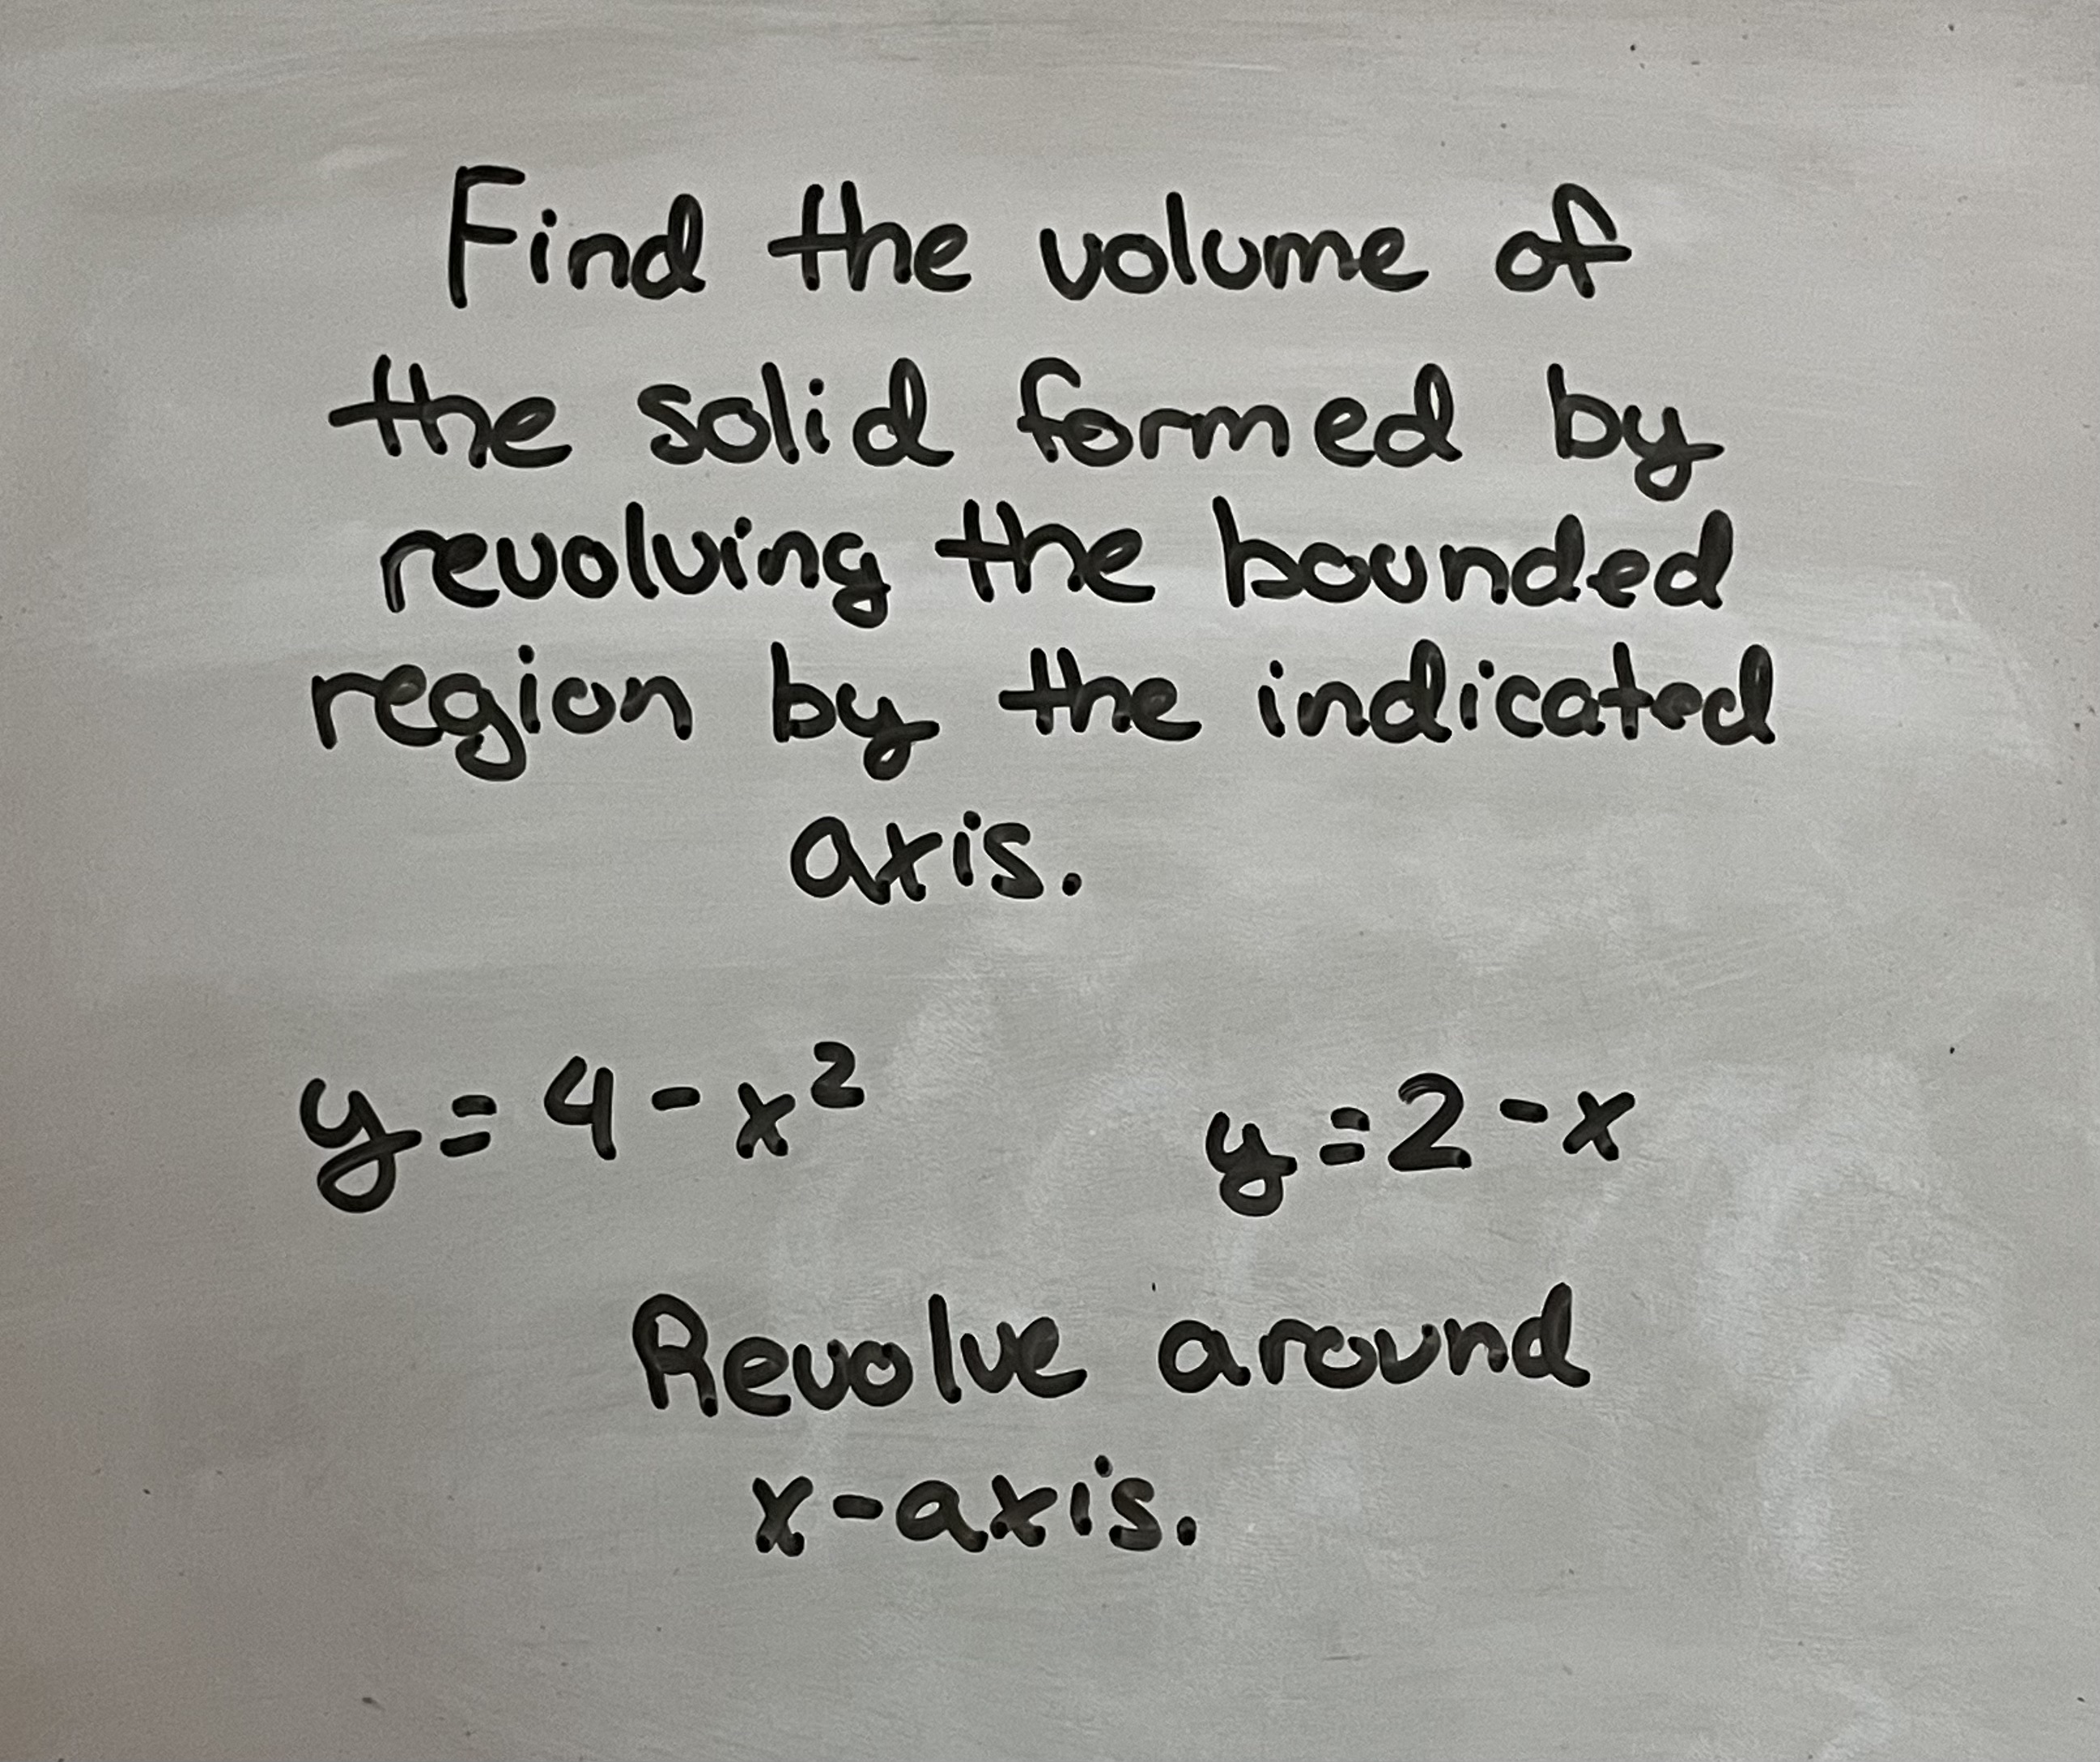 Find the volume of
the solid formed by
revolving the bounded
region by the indicated
axis.
y = 4 - x² y = 2 - x
Revolve around
x-axis.